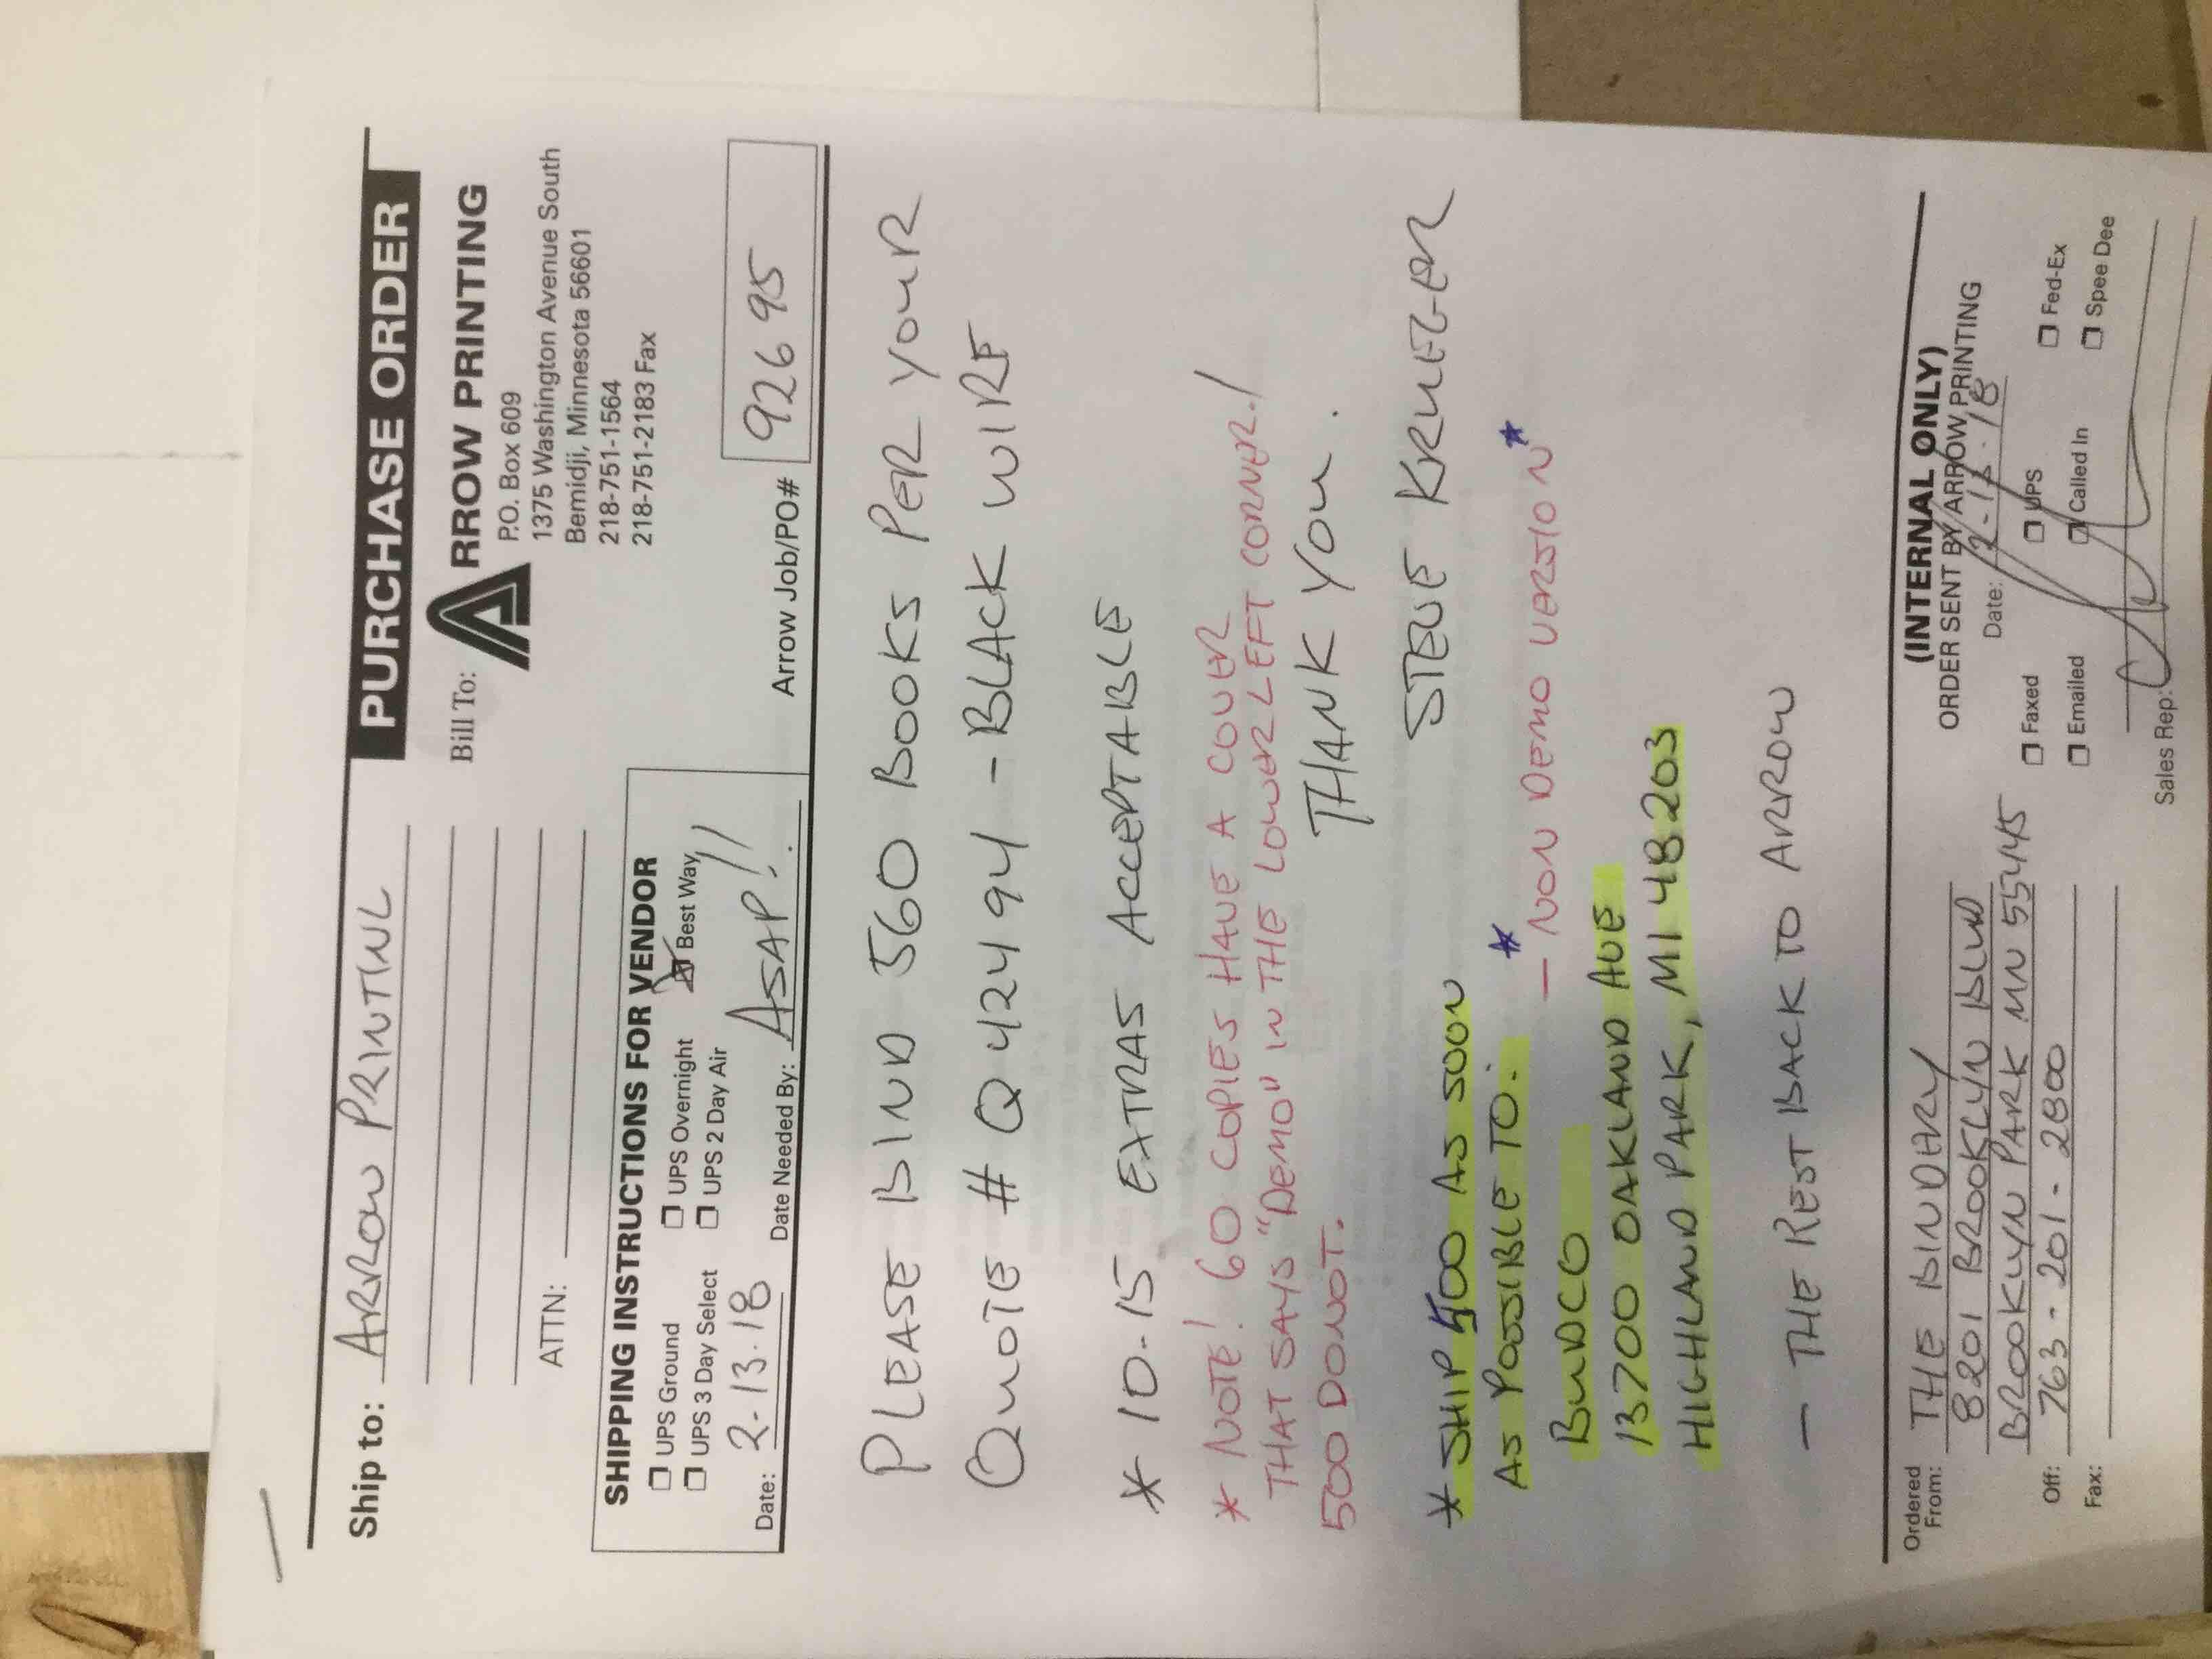 Ship to: ARROW PRINTING
PURCHASE ORDER
Bill To:
ARROW PRINTING
P.O. Box 609
1375 Washington Avenue South
Bemidji, Minnesota 56601
218-751-1564
218-751-2183 Fax
ATTN:
SHIPPING INSTRUCTIONS FOR VENDOR
UPS Ground UPS Overnight Best Way
UPS 3 Day Select UPS 2 Day Air
Date: 2-13-18 Date Needed By: ASAP!!
Arrow Job/PO# 92695
PLEASE BIND 560 BOOKS PER YOUR
QUOTE # Q42494 - BLACK WIRE
* 10-15 EXTRAS ACCEPTABLE
* NOTE! 60 COPIES HAVE A COVER
THAT SAYS "DEMO" IN THE LOWER LEFT CORNER!
500 DO NOT.
THANK YOU.
STEVE KRUEGER
* SHIP 400 AS SOON
AS POSSIBLE TO: * - NON DEMO VERSION *
BUDCO
13700 OAKLAND AVE
HIGHLAND PARK, MI 48203
- THE REST BACK TO ARROW
Ordered From: THE BINDERY
8201 BROOKLYN BLVD
BROOKLYN PARK MN 55445
Off: 763-201-2800
Fax:
(INTERNAL ONLY)
ORDER SENT BY ARROW PRINTING
Date: 2-13-18
Faxed UPS Fed-Ex
Emailed Called In Spee Dee
Sales Rep: